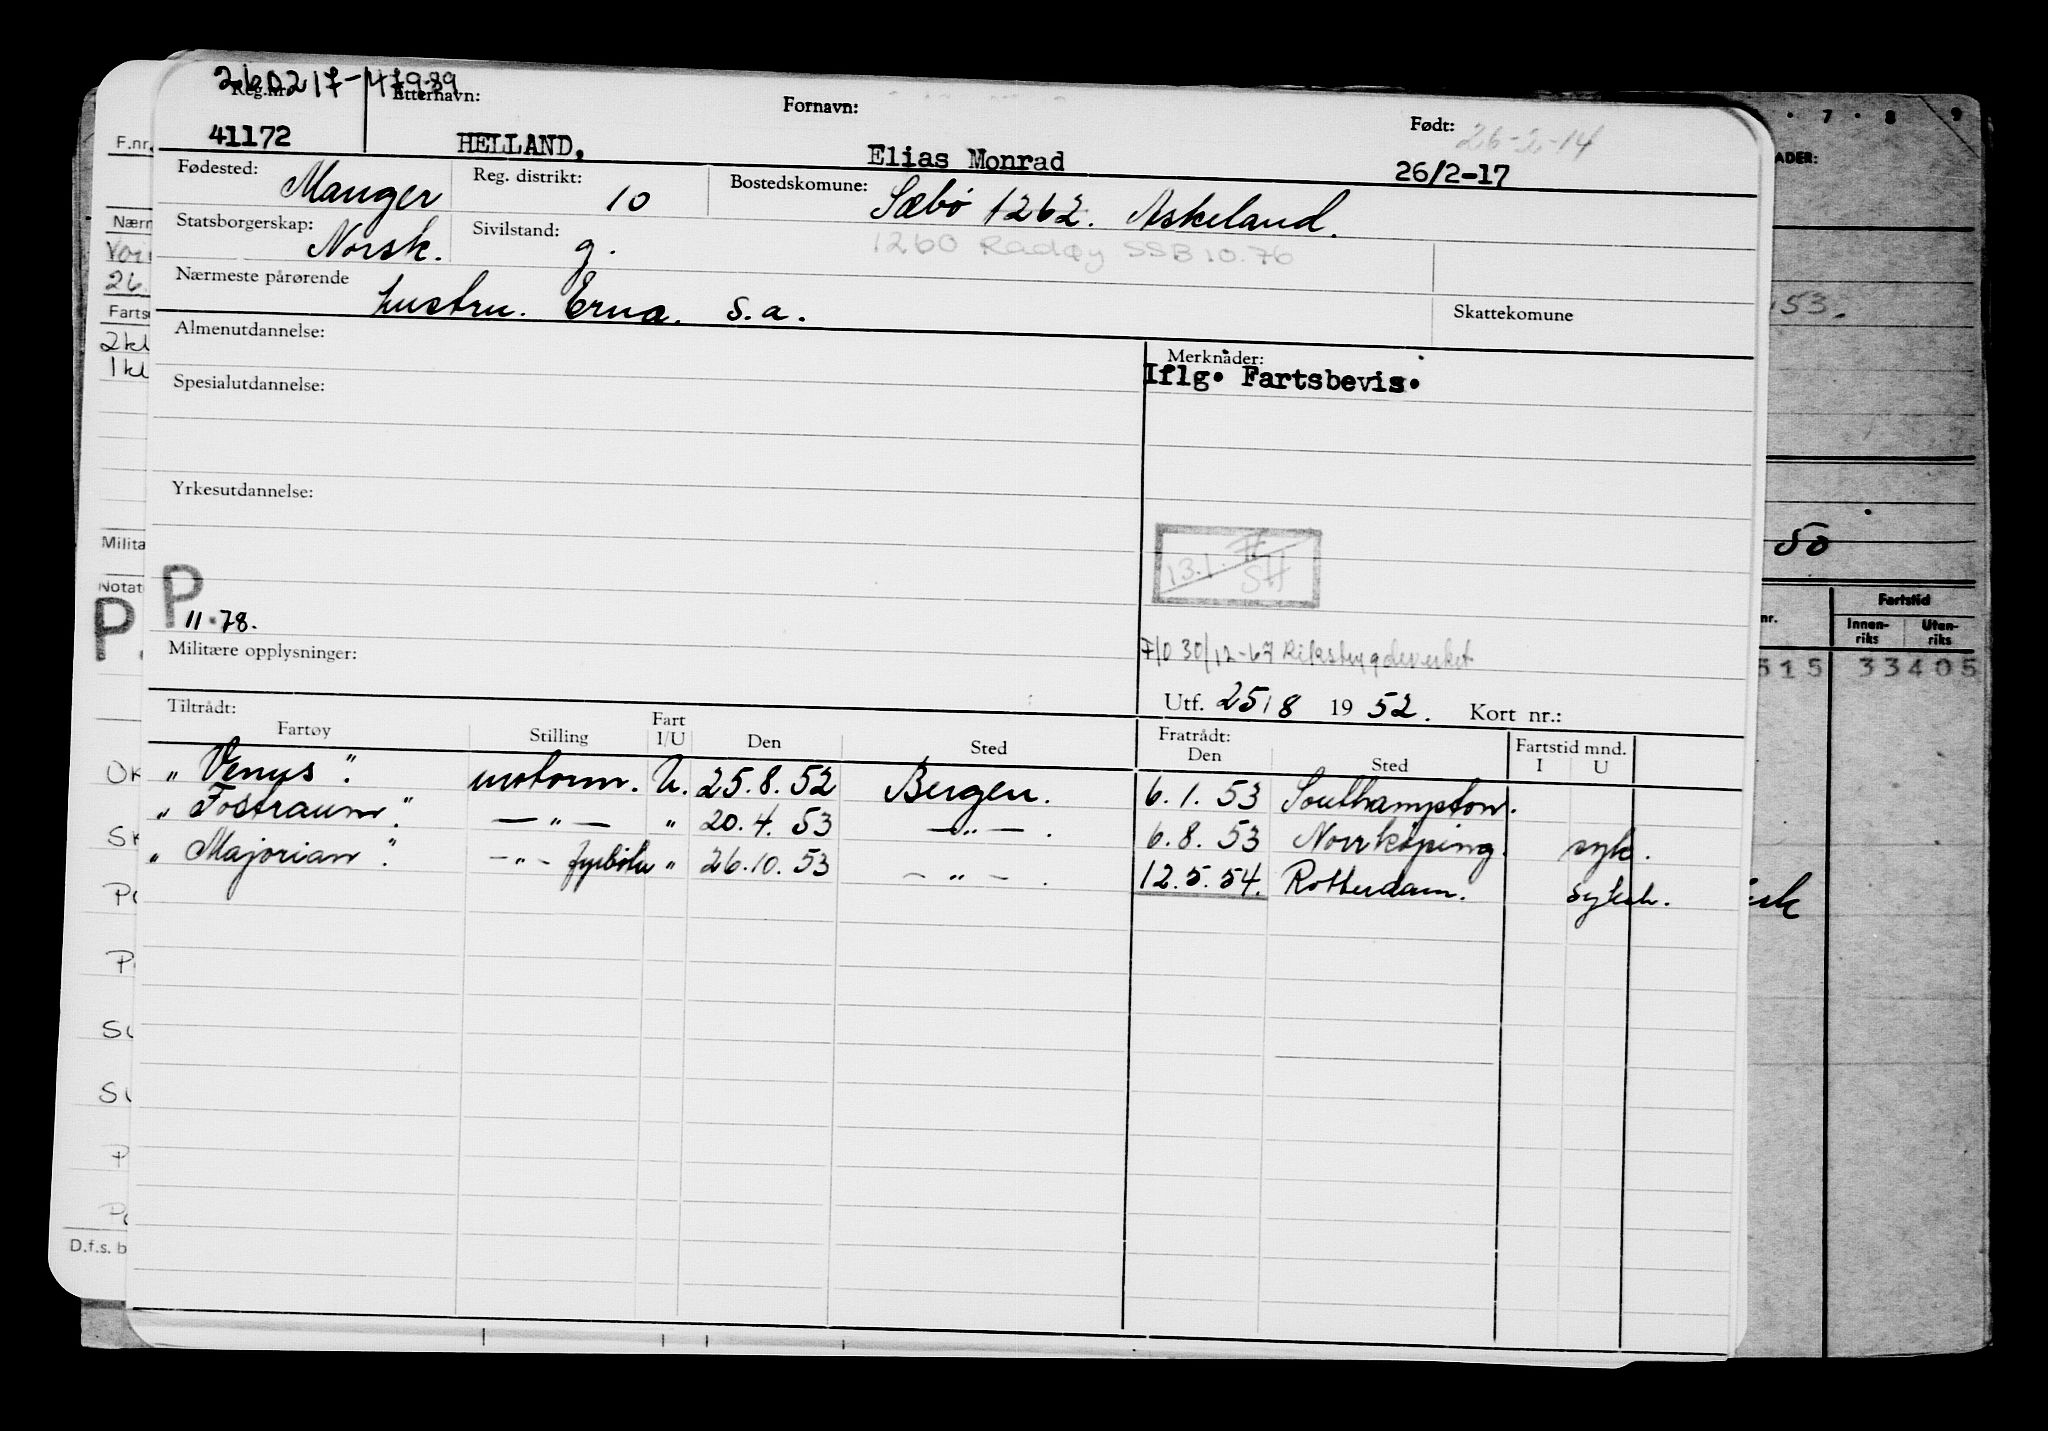 260217-47989
Reg.nr. Etternavn: Fornavn: Født: 26-2-14
41172 HELLAND, Elias Monrad 26/2-17
Fødested: Manger Reg. distrikt: 10 Bostedskomune: Sæbø 1262. Askeland.
Statsborgerskap: Norsk. Sivilstand: g. 1260 Radøy SSB 10.76
Nærmeste pårørende hustru. Erna. s.a. Skattekomune
Almenutdannelse: Merknader:
Iflg. Fartsbevis.
Spesialutdannelse:
Yrkesutdannelse:
13.1.
P
11.78.
Militære opplysninger: F/O 30/12-67 Rikstrygdeverket
Utf. 25/8 1952. Kort nr.:
Tiltrådt: Fratrådt:
Fartøy Stilling Fart I/U Den Sted Den Sted Fartstid mnd. I U
"Venus". motorm. U. 25.8.52 Bergen. 6.1.53 Southampton.
"Fostraum". — " — " 20.4.53 — " — . 6.8.53 Norrköping. syk.
"Majorian". - " - fyrbøter " 26.10.53 — " — . 12.5.54. Rotterdam. sykeh.
F.nr.
Nærm
26.
Farts
2kl
1kl
Milita
Notat
P.
OK
Sk
Po
Po
Su
Su
P
Po
D.f.s. b
. 7 . 8 9
ADER:
53.
50
nr. Fartstid
Innen-riks Uten-riks
515 33405